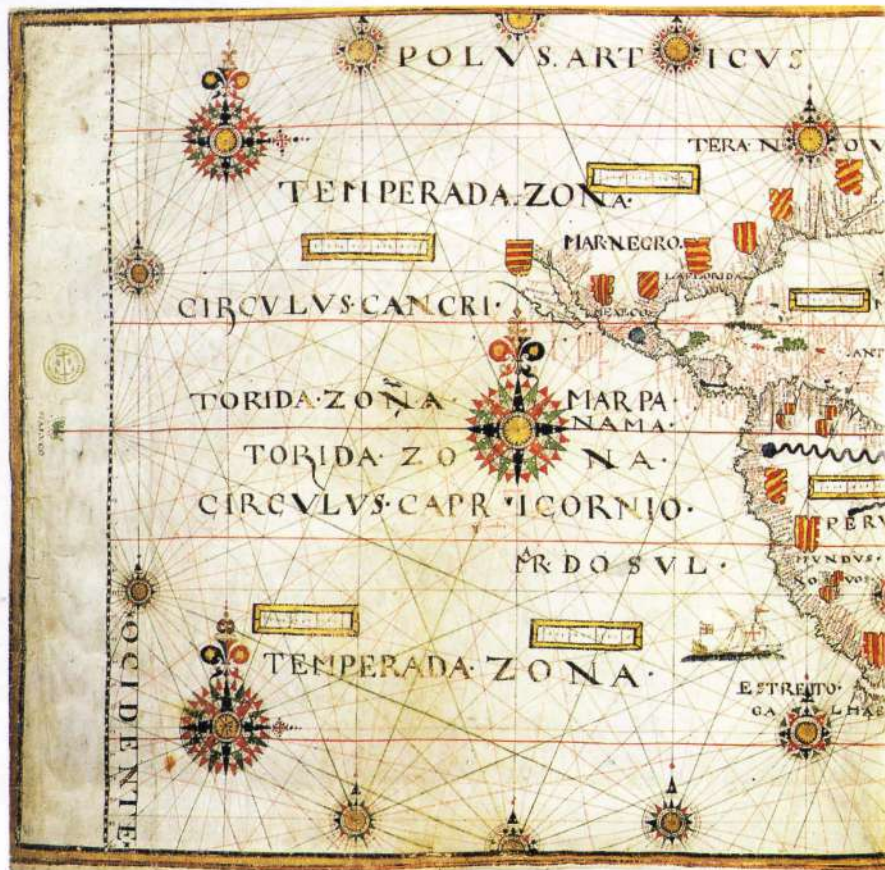 POLVS. ARTICVS
TERA. NOV
TEMPERADA. ZONA.
MAR. NEGRO.
LAFLORIDA
CIRCVLVS. CANCRI.
MEXICO
ANT
TORIDA. ZONA
MAR PA
NAMA.
TORIDA. ZONA.
CIRCVLVS. CAPRICORNIO.
PERV
MVNDVS.
NOVOS
MAR. DO SUL.
TEMPERADA. ZONA.
ESTREITO.
GALHAE
OCIDENTE.